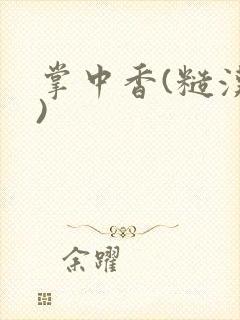 掌中香(糙汉
)
余躍